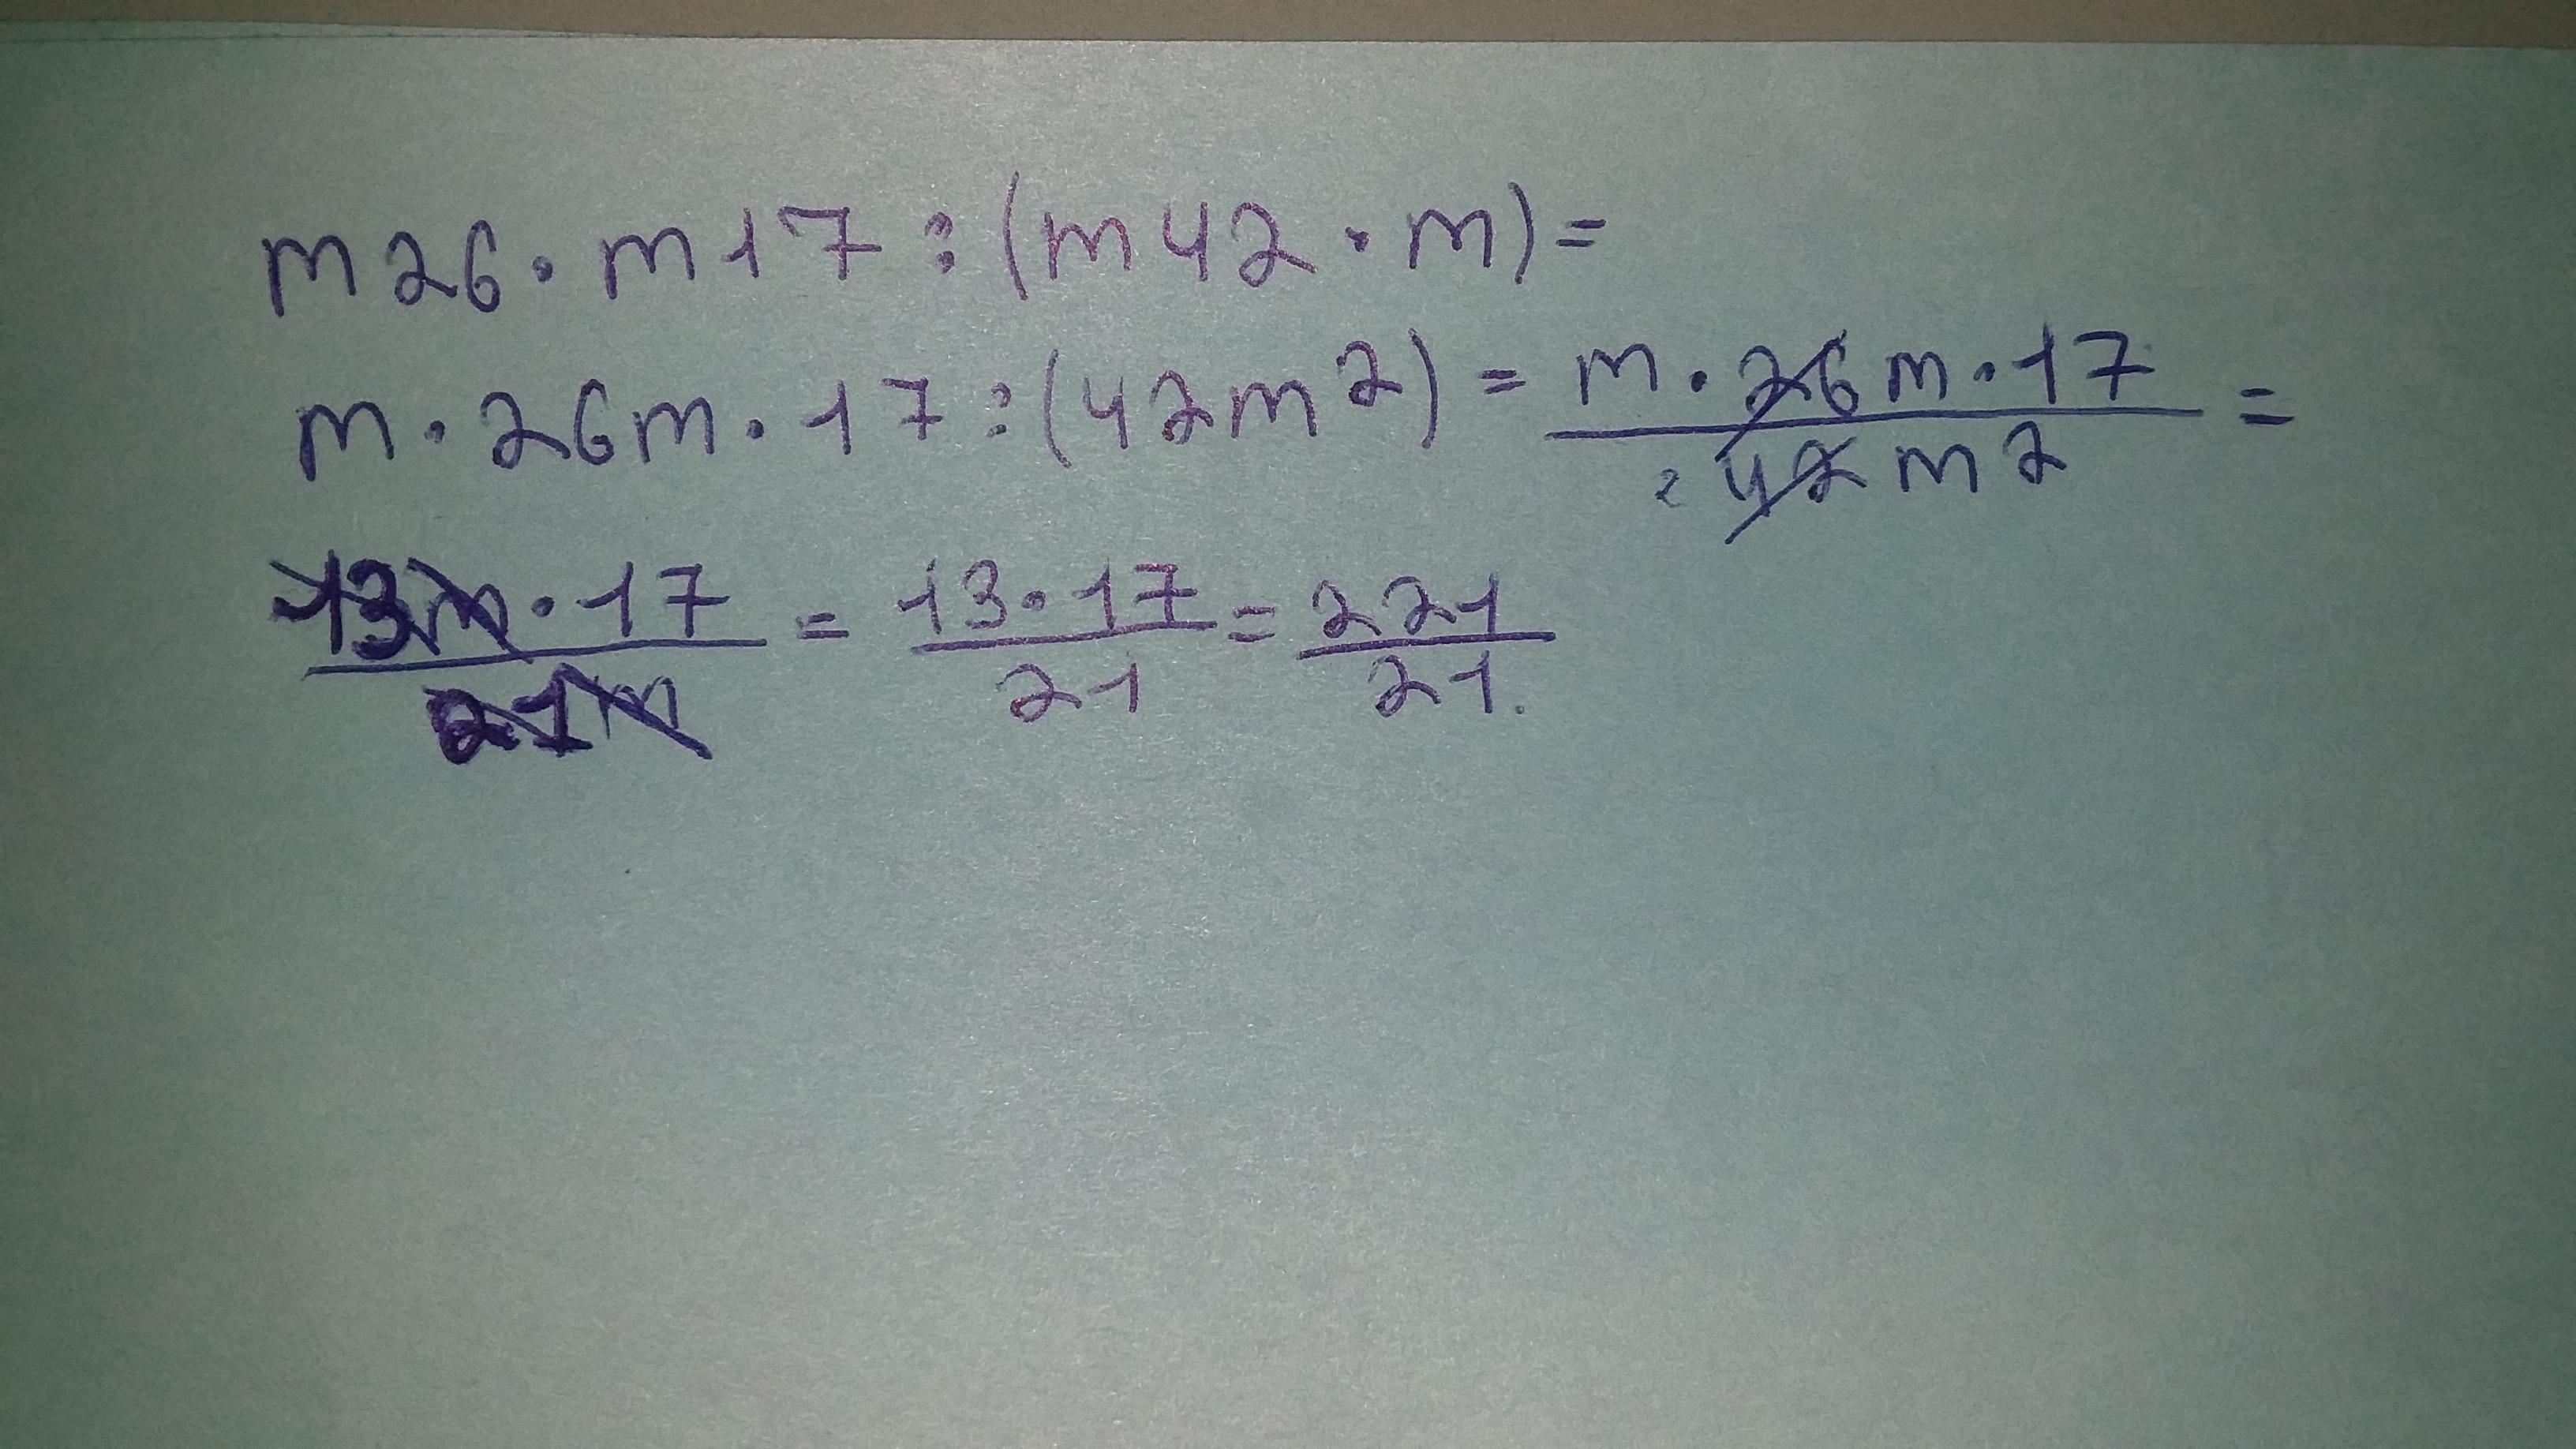 m26·m17:(m42·m)=
m·26m·17:(42m²)= m·26m·17/42m2 =
13m·17/21m = 13·17/21 = 221/21.